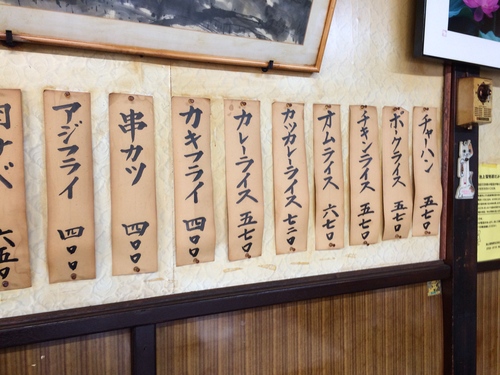 チャーハン 五七〇
ポークライス 五七〇
チキンライス 五七〇
オムライス 六七〇
カツカレーライス 七二〇
カレーライス 五七〇
カキフライ 四〇〇
串カツ 四〇〇
アジフライ 四〇〇
六五〇